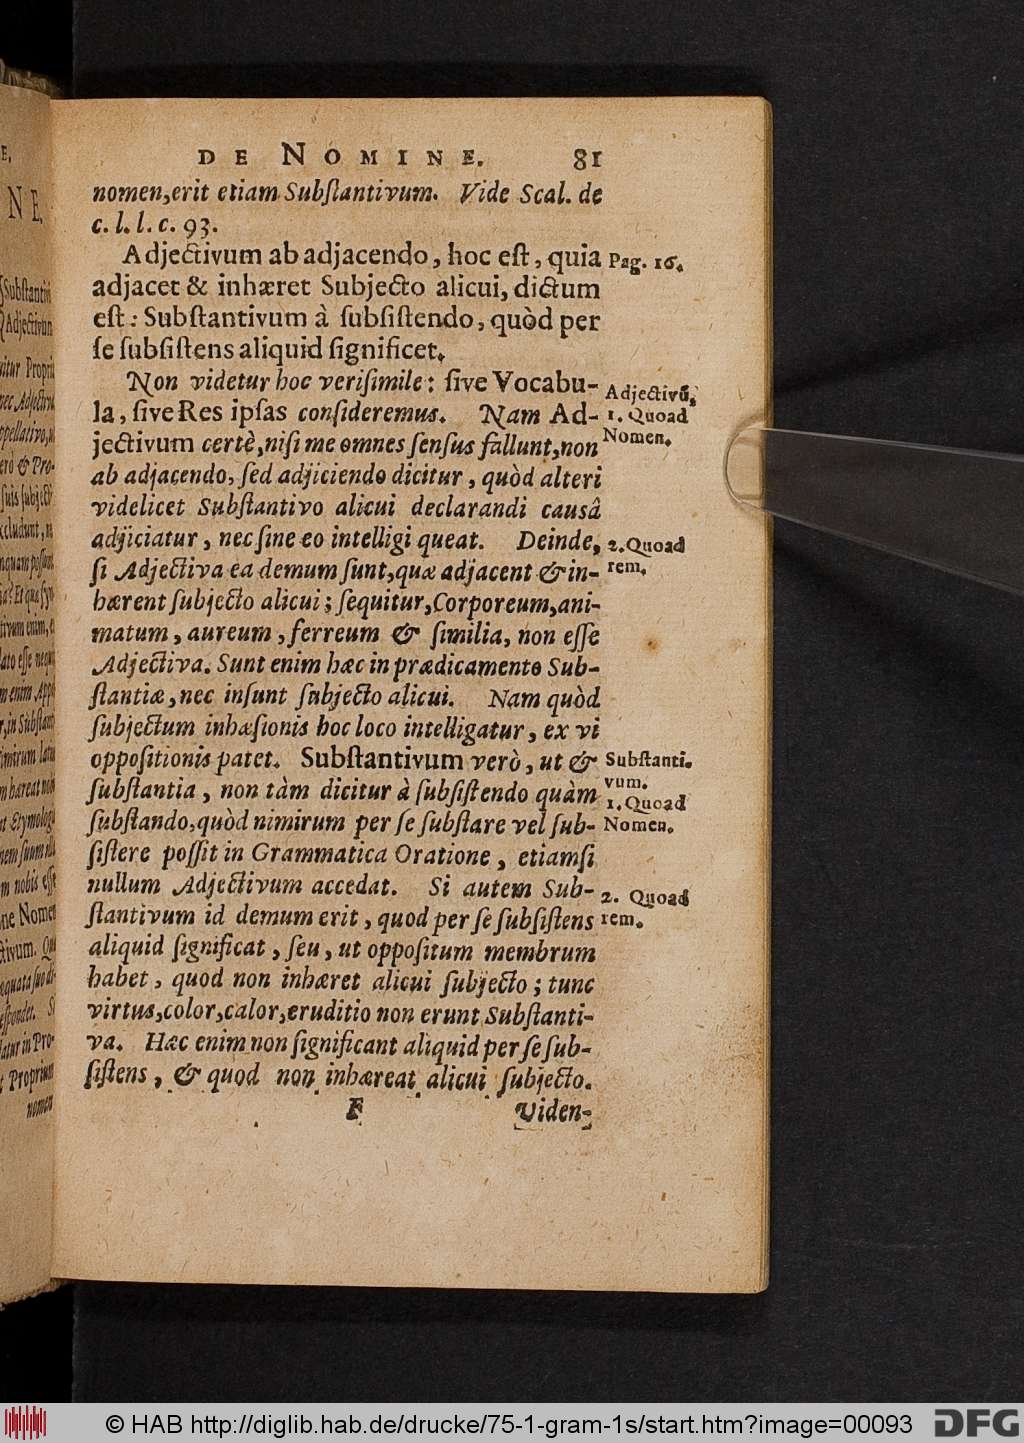 DE NOMINE. 81
nomen,erit etiam Subſtantivum. Vide Scal. de
c. l. l. c. 93.
Adjectivum ab adjacendo, hoc eſt, quia
Pag. 16.
adjacet & inhæret Subjecto alicui, dictum
eſt: Subſtantivum â ſubſiſtendo, quòd per
ſe ſubſiſtens aliquid ſignificet.
Non videtur hoc veriſimile: ſive Vocabu-
Adjectivũ.
la, ſive Res ipſas conſideremus. Nam Ad-
1. Quoad
jectivum certè,niſi me omnes ſenſus fallunt,non
Nomen.
ab adjacendo, ſed adjiciendo dicitur, quòd alteri
videlicet Subſtantivo alicui declarandi causâ
adjiciatur, nec ſine eo intelligi queat. Deinde,
2. Quoad
ſi Adjectiva ea demum ſunt,quæ adjacent & in-
rem.
hærent ſubjecto alicui; ſequitur,Corporeum,ani-
matum, aureum, ferreum & ſimilia, non eſſe
Adjectiva. Sunt enim hæc in prædicamento Sub-
ſtantiæ, nec inſunt ſubjecto alicui. Nam quòd
ſubjectum inhæſionis hoc loco intelligatur, ex vi
oppoſitionis patet. Subſtantivum verò, ut &
Subſtanti-
ſubſtantia, non tàm dicitur à ſubſiſtendo quàm
vum.
1. Quoad
ſubſtando,quòd nimirum per ſe ſubſtare vel ſub-
Nomen.
ſiſtere poſſit in Grammatica Oratione, etiamſi
nullum Adjectivum accedat. Si autem Sub-
2. Quoad
ſtantivum id demum erit, quod per ſe ſubſiſtens
rem.
aliquid ſignificat, ſeu, ut oppoſitum membrum
habet, quod non inhæret alicui ſubjecto; tunc
virtus,color,calor,eruditio non erunt Subſtanti-
va. Hæc enim non ſignificant aliquid per ſe ſub-
ſiſtens, & quod non inhæreat alicui ſubjecto.
F Viden-
© HAB http://diglib.hab.de/drucke/75-1-gram-1s/start.htm?image=00093 DFG